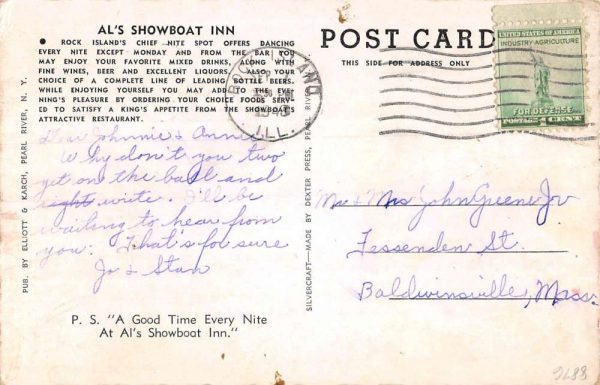 AL'S SHOWBOAT INN
• ROCK ISLAND'S CHIEF NITE SPOT OFFERS DANCING
EVERY NITE EXCEPT MONDAY AND FROM THE BAR YOU
MAY ENJOY YOUR FAVORITE MIXED DRINKS, ALONG WITH
FINE WINES, BEER AND EXCELLENT LIQUORS. ALSO YOUR
CHOICE OF A COMPLETE LINE OF LEADING BOTTLE BEERS.
WHILE ENJOYING YOURSELF YOU MAY ADD TO THE EVE-
NING'S PLEASURE BY ORDERING YOUR CHOICE FOODS SERV-
ED TO SATISFY A KING'S APPETITE FROM THE SHOWBOAT'S
ATTRACTIVE RESTAURANT.
Dear Johnnie & Anne
Why don't you two
get on the ball and
right write. I'll be
waiting to hear from
you. That's for sure
Jo & Stan
P. S. "A Good Time Every Nite
At Al's Showboat Inn."
PUB. BY ELLIOTT & KARCH, PEARL RIVER, N. Y.
SILVERCRAFT—MADE BY DEXTER PRESS, PEARL RIVER
ROCK ISLAND
ILL.
POST CARD
THIS SIDE FOR ADDRESS ONLY
UNITED STATES OF AMERICA
INDUSTRY AGRICULTURE
FOR DEFENSE
POSTAGE 1 CENT
Mr & Mrs John Greene Jr
Fessenden St.
Baldwinsville, Mass.
9688